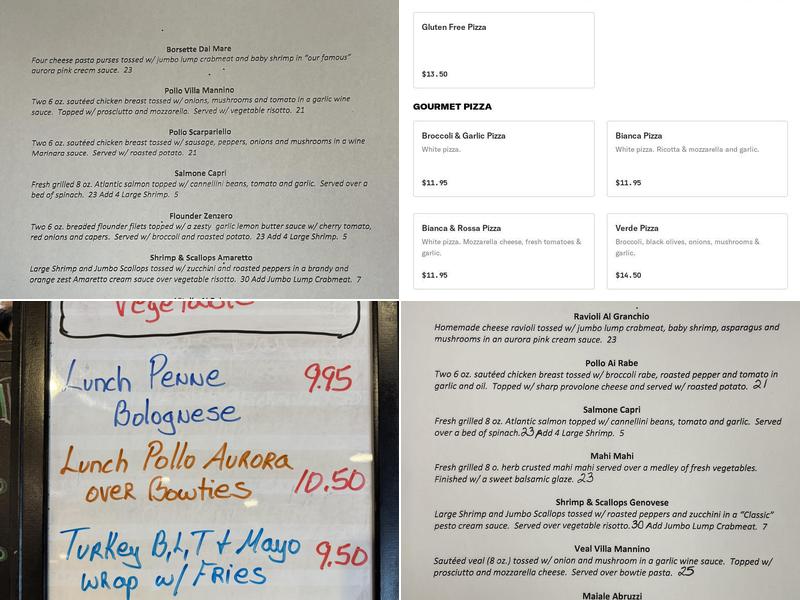 Borsette Dal Mare
Four cheese pasta purses tossed w/ jumbo lump crabmeat and baby shrimp in "our famous"
aurora pink cream sauce. 23
Pollo Villa Mannino
Two 6 oz. sautéed chicken breast tossed w/onions, mushrooms and tomato in a garlic wine
sauce. Topped w/ prosciutto and mozzarella. Served w/ vegetable risotto. 21
Pollo Scarpariello
Two 6 oz. sautéed chicken breast tossed w/ sausage, peppers, onions and mushrooms in a wine
Marinara sauce. Served w/ roasted potato. 21
Salmone Capri
Fresh grilled 8 oz. Atlantic salmon topped w/ cannellini beans, tomato and garlic. Served over a
bed of spinach. 23 Add 4 Large Shrimp. 5
Flounder Zenzero
Two 6 oz. breaded flounder filets topped w/ a zesty garlic lemon butter sauce w/ cherry tomato,
red onions and capers. Served w/ broccoli and roasted potato. 23 Add 4 Large Shrimp. 5
Shrimp & Scallops Amaretto
Large Shrimp and Jumbo Scallops tossed w/ zucchini and roasted peppers in a brandy and
orange zest Amaretto cream sauce over vegetable risotto. 30 Add Jumbo Lump Crabmeat. 7
Gluten Free Pizza
$13.50
GOURMET PIZZA
Broccoli & Garlic Pizza
White pizza.
$11.95
Bianca Pizza
White pizza. Ricotta & mozzarella and garlic.
$11.95
Bianca & Rossa Pizza
White pizza. Mozzarella cheese, fresh tomatoes &
garlic.
$11.95
Verde Pizza
Broccoli, black olives, onions, mushrooms &
garlic.
$14.50
Vegetable
Lunch Penne 9.95
Bolognese
Lunch Pollo Aurora
over Bowties 10.50
Turkey B,L,T + Mayo 9.50
wrap w/ Fries
Ravioli Al Granchio
Homemade cheese ravioli tossed w/ jumbo lump crabmeat, baby shrimp, asparagus and
mushrooms in an aurora pink cream sauce. 23
Pollo Ai Rabe
Two 6 oz. sautéed chicken breast tossed w/ broccoli rabe, roasted pepper and tomato in
garlic and oil. Topped w/ sharp provolone cheese and served w/ roasted potato. 21
Salmone Capri
Fresh grilled 8 oz. Atlantic salmon topped w/ cannellini beans, tomato and garlic. Served
over a bed of spinach. 23 Add 4 Large Shrimp. 5
Mahi Mahi
Fresh grilled 8 o. herb crusted mahi mahi served over a medley of fresh vegetables.
Finished w/ a sweet balsamic glaze. 23
Shrimp & Scallops Genovese
Large Shrimp and Jumbo Scallops tossed w/ roasted peppers and zucchini in a "Classic"
pesto cream sauce. Served over vegetable risotto. 30 Add Jumbo Lump Crabmeat. 7
Veal Villa Mannino
Sautéed veal (8 oz.) tossed w/ onion and mushroom in a garlic wine sauce. Topped w/
prosciutto and mozzarella cheese. Served over bowtie pasta. 25
Maiale Abruzzi